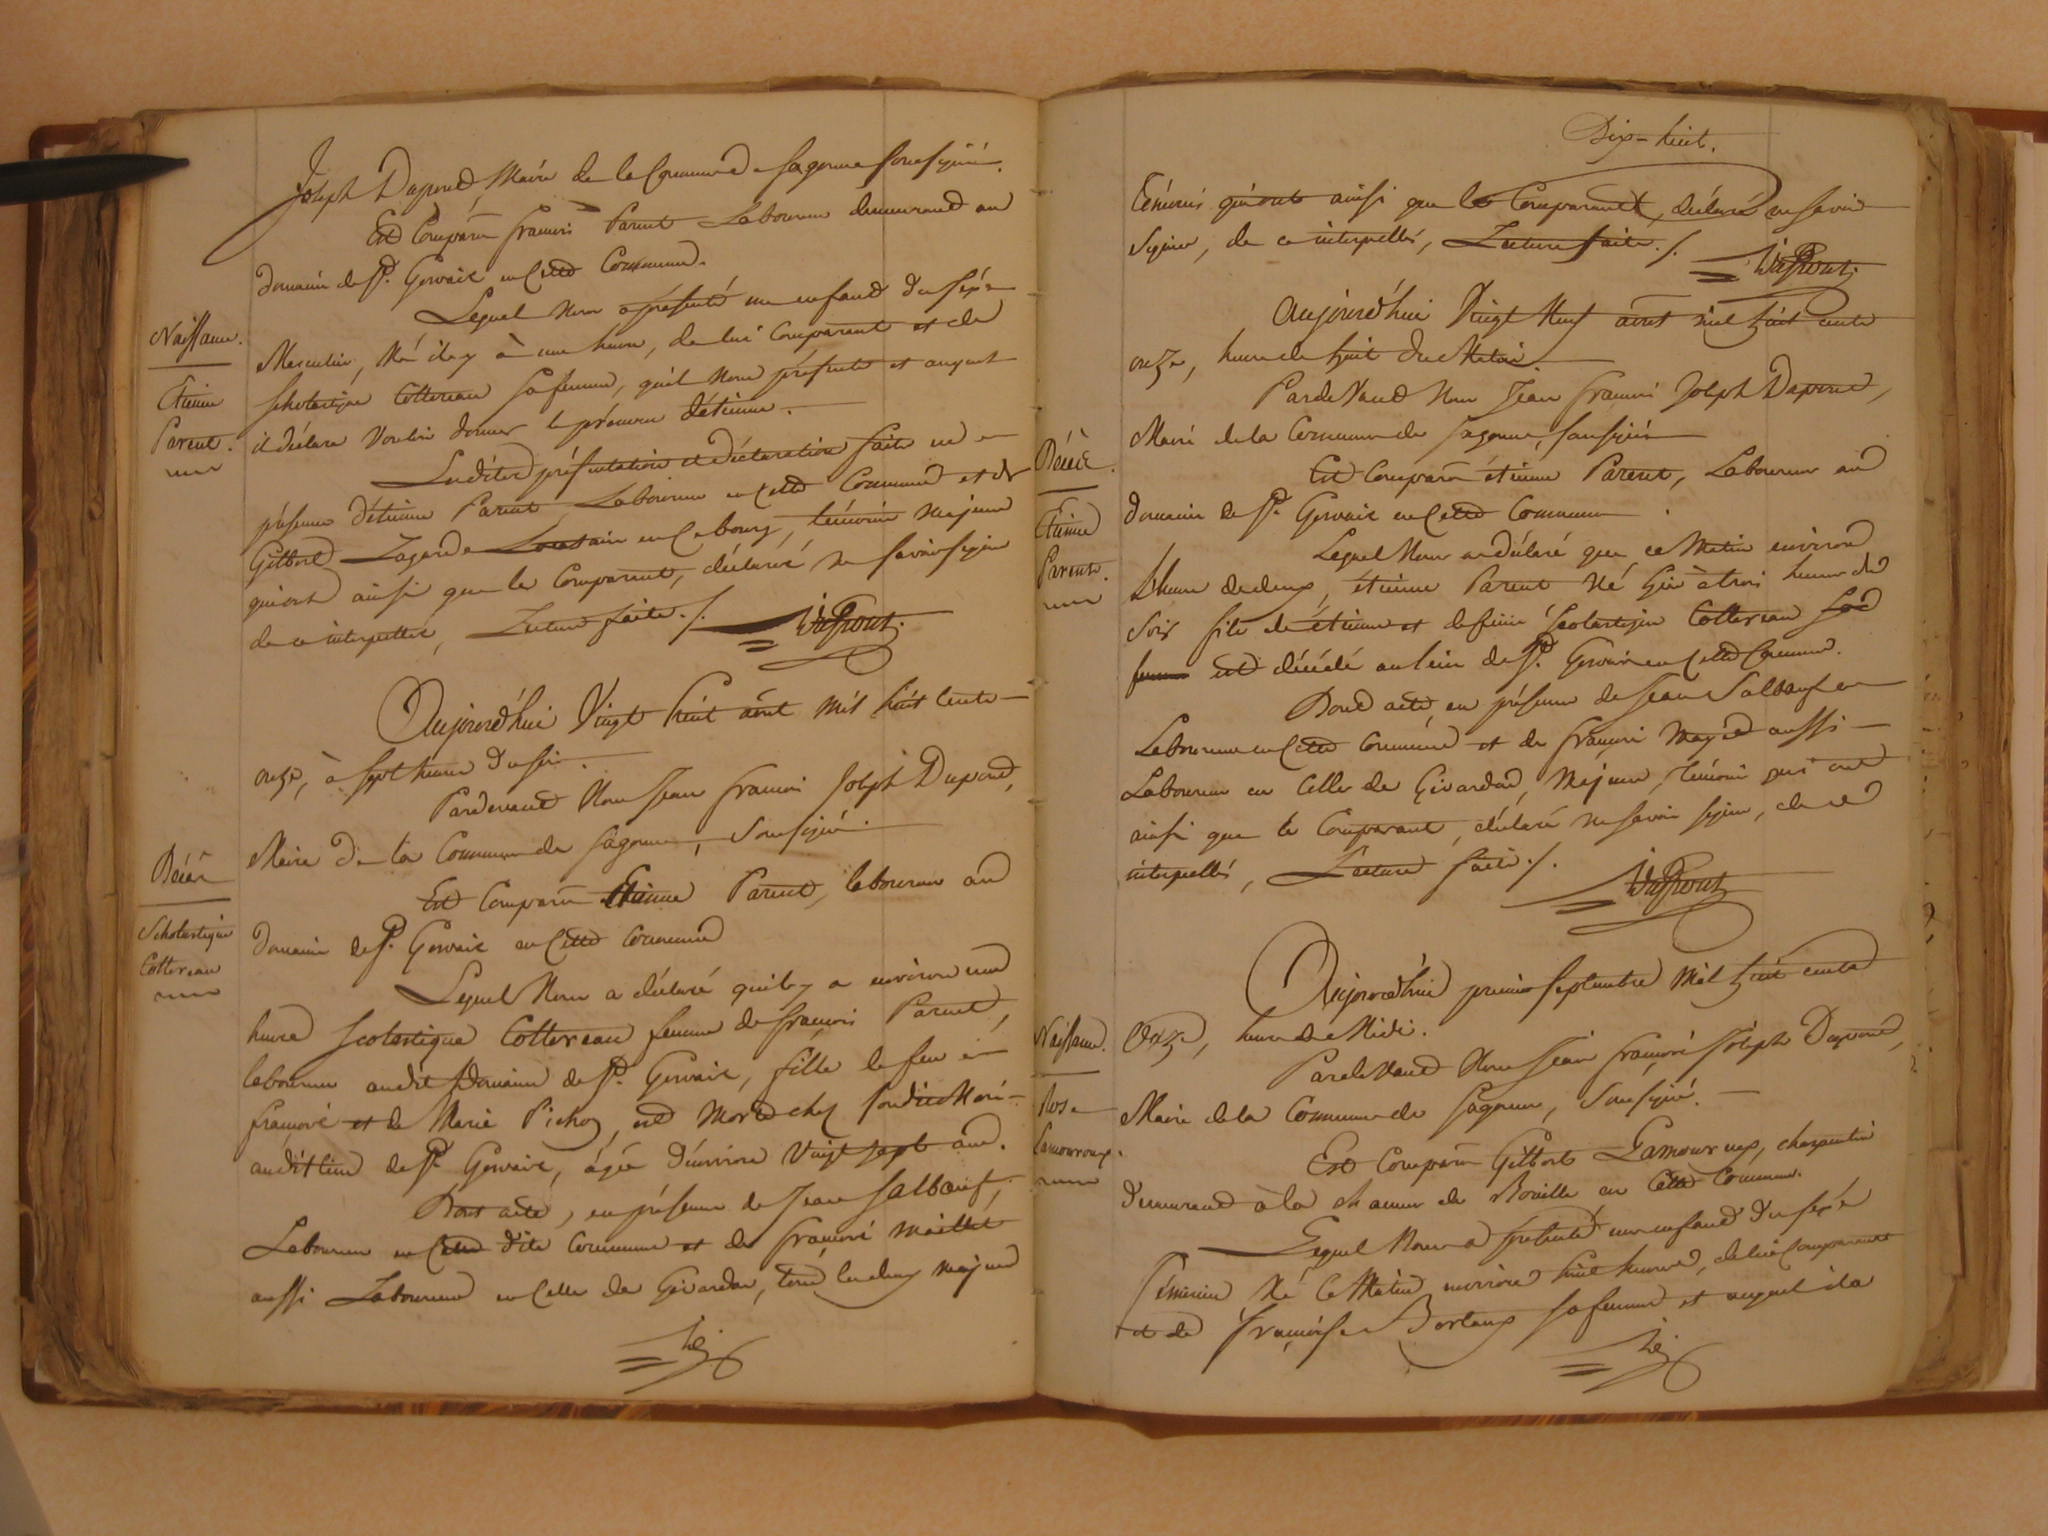 Joseph Dupond, Maire de la Commune de Sagonne soussigné.
Est Comparu françois Parent Laboureur demeurand au
domaine de St. Gervais en Cette Commune.
Lequel Nous a présenté un enfand du séxe
Naissance.
Masculin, Né il y à une heure, de lui Comparant et de
Etienne
Parent.
Scholastique Cottereau sa femme, qu'il Nous présente et auquel
il déclare Vouloir donner le prénom d'étienne.
Ladite présentation et déclaration faite en
présence d'étienne Parent Laboureur en Cette Commune et de
Gilbert Lagarde en Ce bourg, témoins Majeurs
qui ont ainsi que le Comparant, déclaré ne savoir signer
de ce interpellés, Lecture faite ./.
Aujourd'hui Vingt huit août Mil huit Cents
onze, à sept heures du soir.
Pardevand Nous Jean françois Joseph Dupond,
Maire de la Commune de Sagonne, Soussigné.
Décès
Est Comparu Etienne Parent, laboureur au
Scholastique
Cottereau
domaine de St. Gervais en Cette Commune
Lequel Nous a déclaré qu'il y a environ une
heure Scolastique Cottereau femme de françois Parent,
laboureur audit Domaine de St. Gervais, fille de feu
françois et de Marie Pichoz, est Morte chez sondit Mari
audit lieu de St. Gervais, âgée d'environ Vingt sept ans.
Dont acte, en présence de Jean Salbœuf,
Laboureur en Cette dite Commune et de françois Maillet
aussi Laboureur en Celle de Givardon, tous les deux majeurs
Dix-huit.
témoins qui ont ainsi que le Comparant, déclaré ne savoir
signer, de ce interpellés, Lecture faite ./.
Aujourd'hui Vingt Neuf août mil huit cents
onze, heure de huit du Matin
Pardevand Nous Jean françois Joseph Dupond,
Maire de la Commune de Sagonne, soussigné
Décès.
Est Comparu étienne Parent, Laboureur au
Etienne
Parent.
domaine de St. Gervais en Cette Commune
Lequel Nous a déclaré que ce Matin environ
L'heure de deux, étienne Parent Né hier à trois heures du
Soir fils de étienne et defunte Scolastique Cottereau sa
femme est décédé au lieu de St. Gervais en Cette Commune.
Dond acte, en présence de Jean Salbœuf
Laboureur en Cette Commune et de françois aussi
Laboureur en Celle de Givardon, Majeurs, témoins qui ont
ainsi que le Comparant, déclaré ne savoir signer, de ce
interpellés, Lecture faite ./.
Aujourd'hui premier Septembre Mil huit cents
Naissance.
Onze, heure de Midi.
Pardevand Nous Jean françois Joseph Dupond,
Rose
Lamouroux.
Maire de la Commune de Sagonne, Soussigné.
Est Comparu Gilbert Lamouroux, charpentier
demeurand à la en Cette Commune.
Lequel Nous a présenté un enfand du séxe
féminin Né Ce Matin environ huit heures, de lui Comparant
et de françoise sa femme et auquel il a